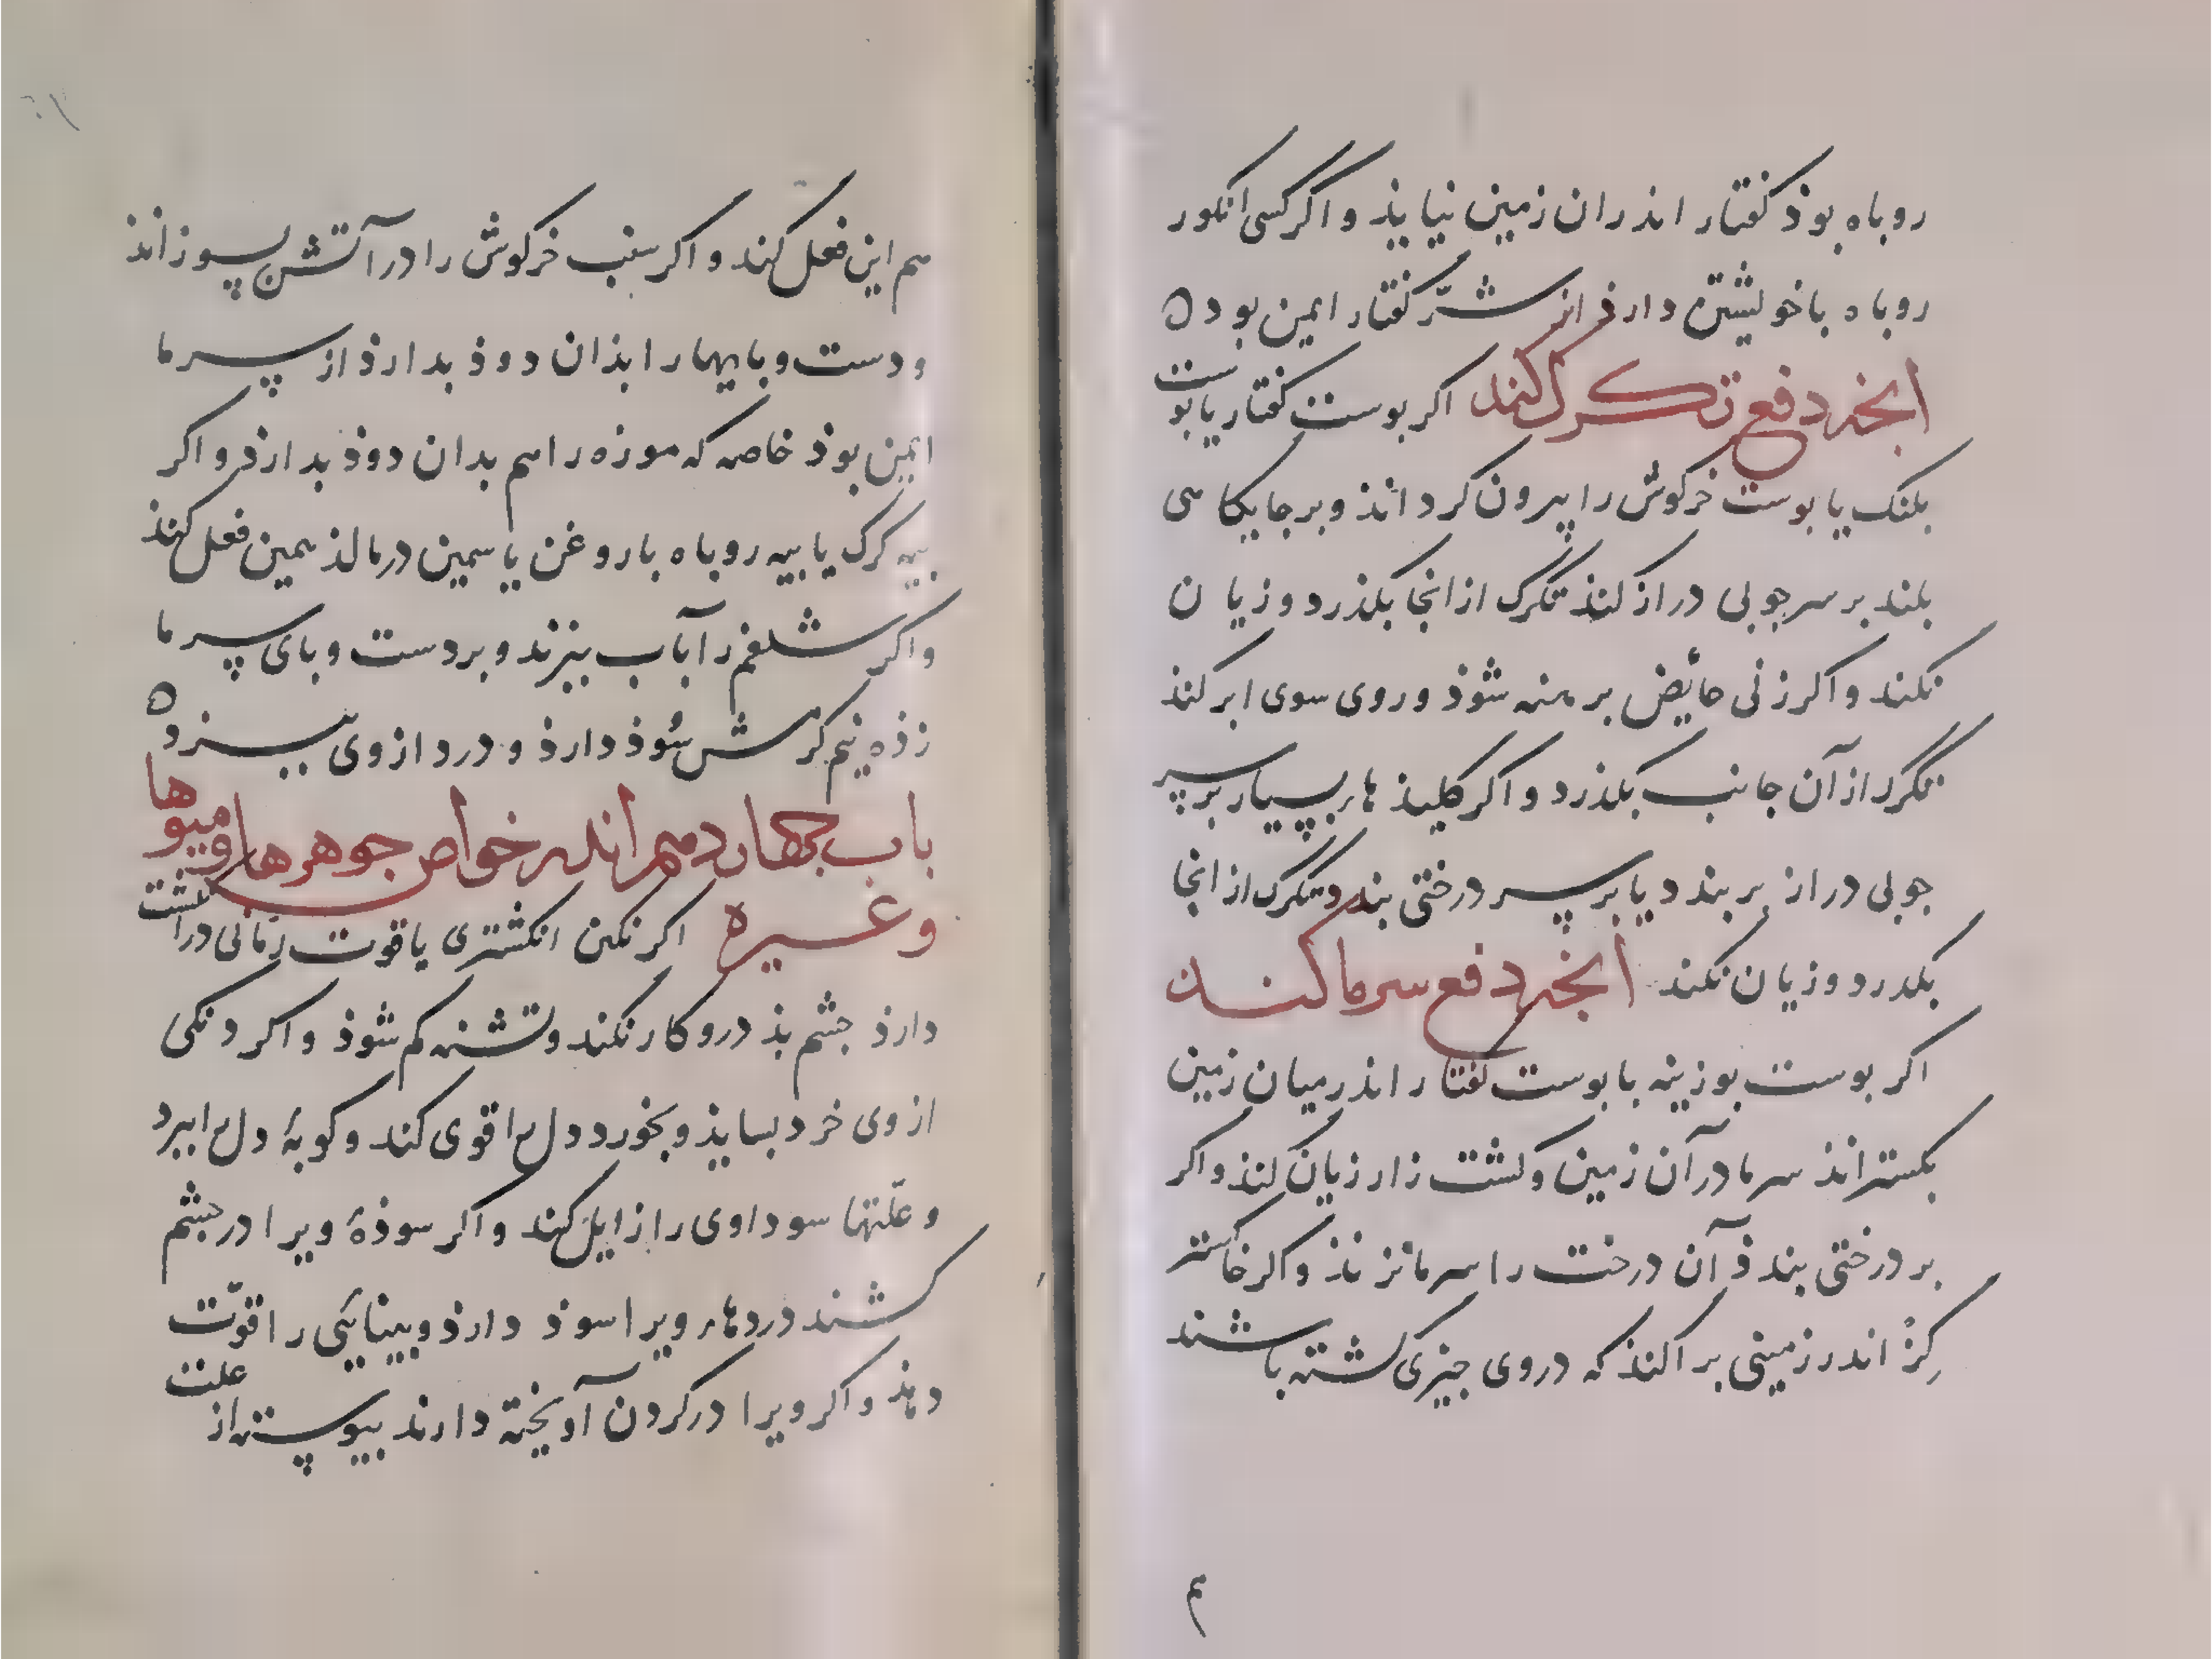 روباه بوذ کفتار اندران زمین نیایذ و اگر کسی انکور
روباه باخویشتن دارذ از شرّ کفتار ایمن بود ه
انجه دفع تکرک کند اکر بوست کفتار یا بوست
بلنک یا بوست خرکوش را پیرون کرد انذ و بر جایکاهی
بلند بر سر جوبی دراز کنذ تکرک از انجا بکذرد و زیان
نکند و اکر زنی حایض برهنه شوذ و روی سوی ابر کنذ
تکرک از آن جانب بکذرد و اکر کلیذهاء بسیار بر سر
جوبی دراز بربندد یا بر سر درختی بندد تکرک از انجا
بکدرد و زیان نکند انجه دفع سرما کند
اکر بوست بوزینه با بوست کفتار اندر میان زمین
بکستراند سرما در آن زمین و کشت زار زیان کند و اکر
بر درختی بندذ آن درخت را سرما نزنذ و اکر خاکستر
کز اندر زمینی براکنذ که دروی جیزی کشته باشند
هم
هم این فعل کند و اکر سنب خرکوش را در آتش بسوزانذ
و دست و بایها را بذان دوذ بدارذ از سرما
ایمن بوذ خاصه که موزه را هم بدان دوذ بدارذ و اکر
بیه کرک یا بیه روباه با روغن یاسمین درمالذ همین فعل کنذ
و اکر شلغم را بآب ببزند و بر دست و بای سرما
زذه نیم کرمش سوذ دارذ و درد از وی ببرد ه
باب جهاردهم اندر خواص جوهرها و میوها
و غیره اکر نکین انکشتری یاقوت رمّانی در انکشت
دارذ جشم بذ درو کار نکند و تشنه کم شوذ و اکر دنکی
از وی خرد بسایذ و بخورد دل را قوی کند و کوبهٔ دل را ببرد
و علّتها سوداوی را زایل کند و اکر سوذهٔ ویرا در جشم
کشند دردهاء ویرا سوذ دارذ و بینایی را قوّت
دهذ و اکر ویرا در کردن آویخته دارند بیوسته از علت